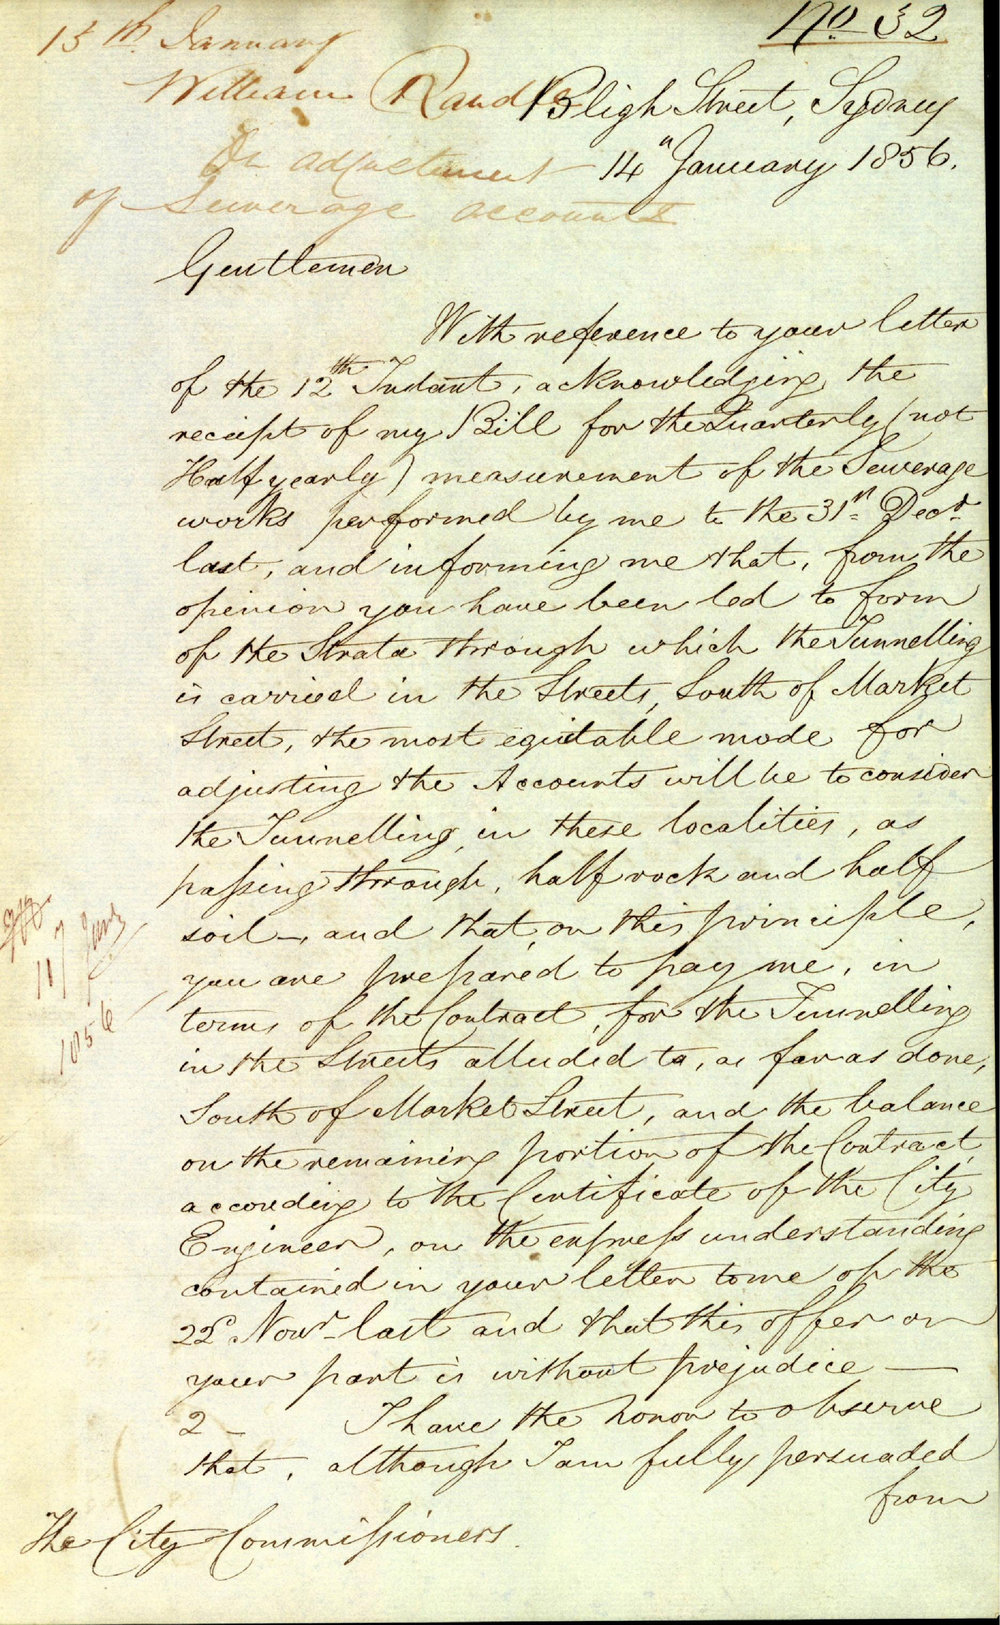 15th January
No 32
William Randle
Bligh Street, Sydney
On adjustment
14th January 1856.
of Sewerage accounts
Gentlemen
With reference to your letter
of the 12th Instant, acknowledging the
receipt of my Bill for the Quarterly (not
Half yearly) measurement of the Sewerage
works performed by me to the 31st Decr.
last, and informing me that, from the
opinion you have been led to form
of the Strata through which the Tunnelling
is carried in the Streets, South of Market
Street, the most equitable mode for
adjusting the Accounts will be to consider
the Tunnelling, in these localities, as
passing through, half rock and half
soil—, and that, on this principle,
you are prepared to pay me, in
terms of the Contract, for the Tunnelling
in the Streets alluded to, as far as done,
South of Market Street, and the balance
on the remaining portion of the Contract,
according to the Certificate of the City
Engineer, on the express understanding
contained in your letter to me of the
22d Novr. last and that this offer on
your part is without prejudice —
2 — I have the honor to observe
that, although I am fully persuaded
from
The City Commissioners.
17 Jany
1856